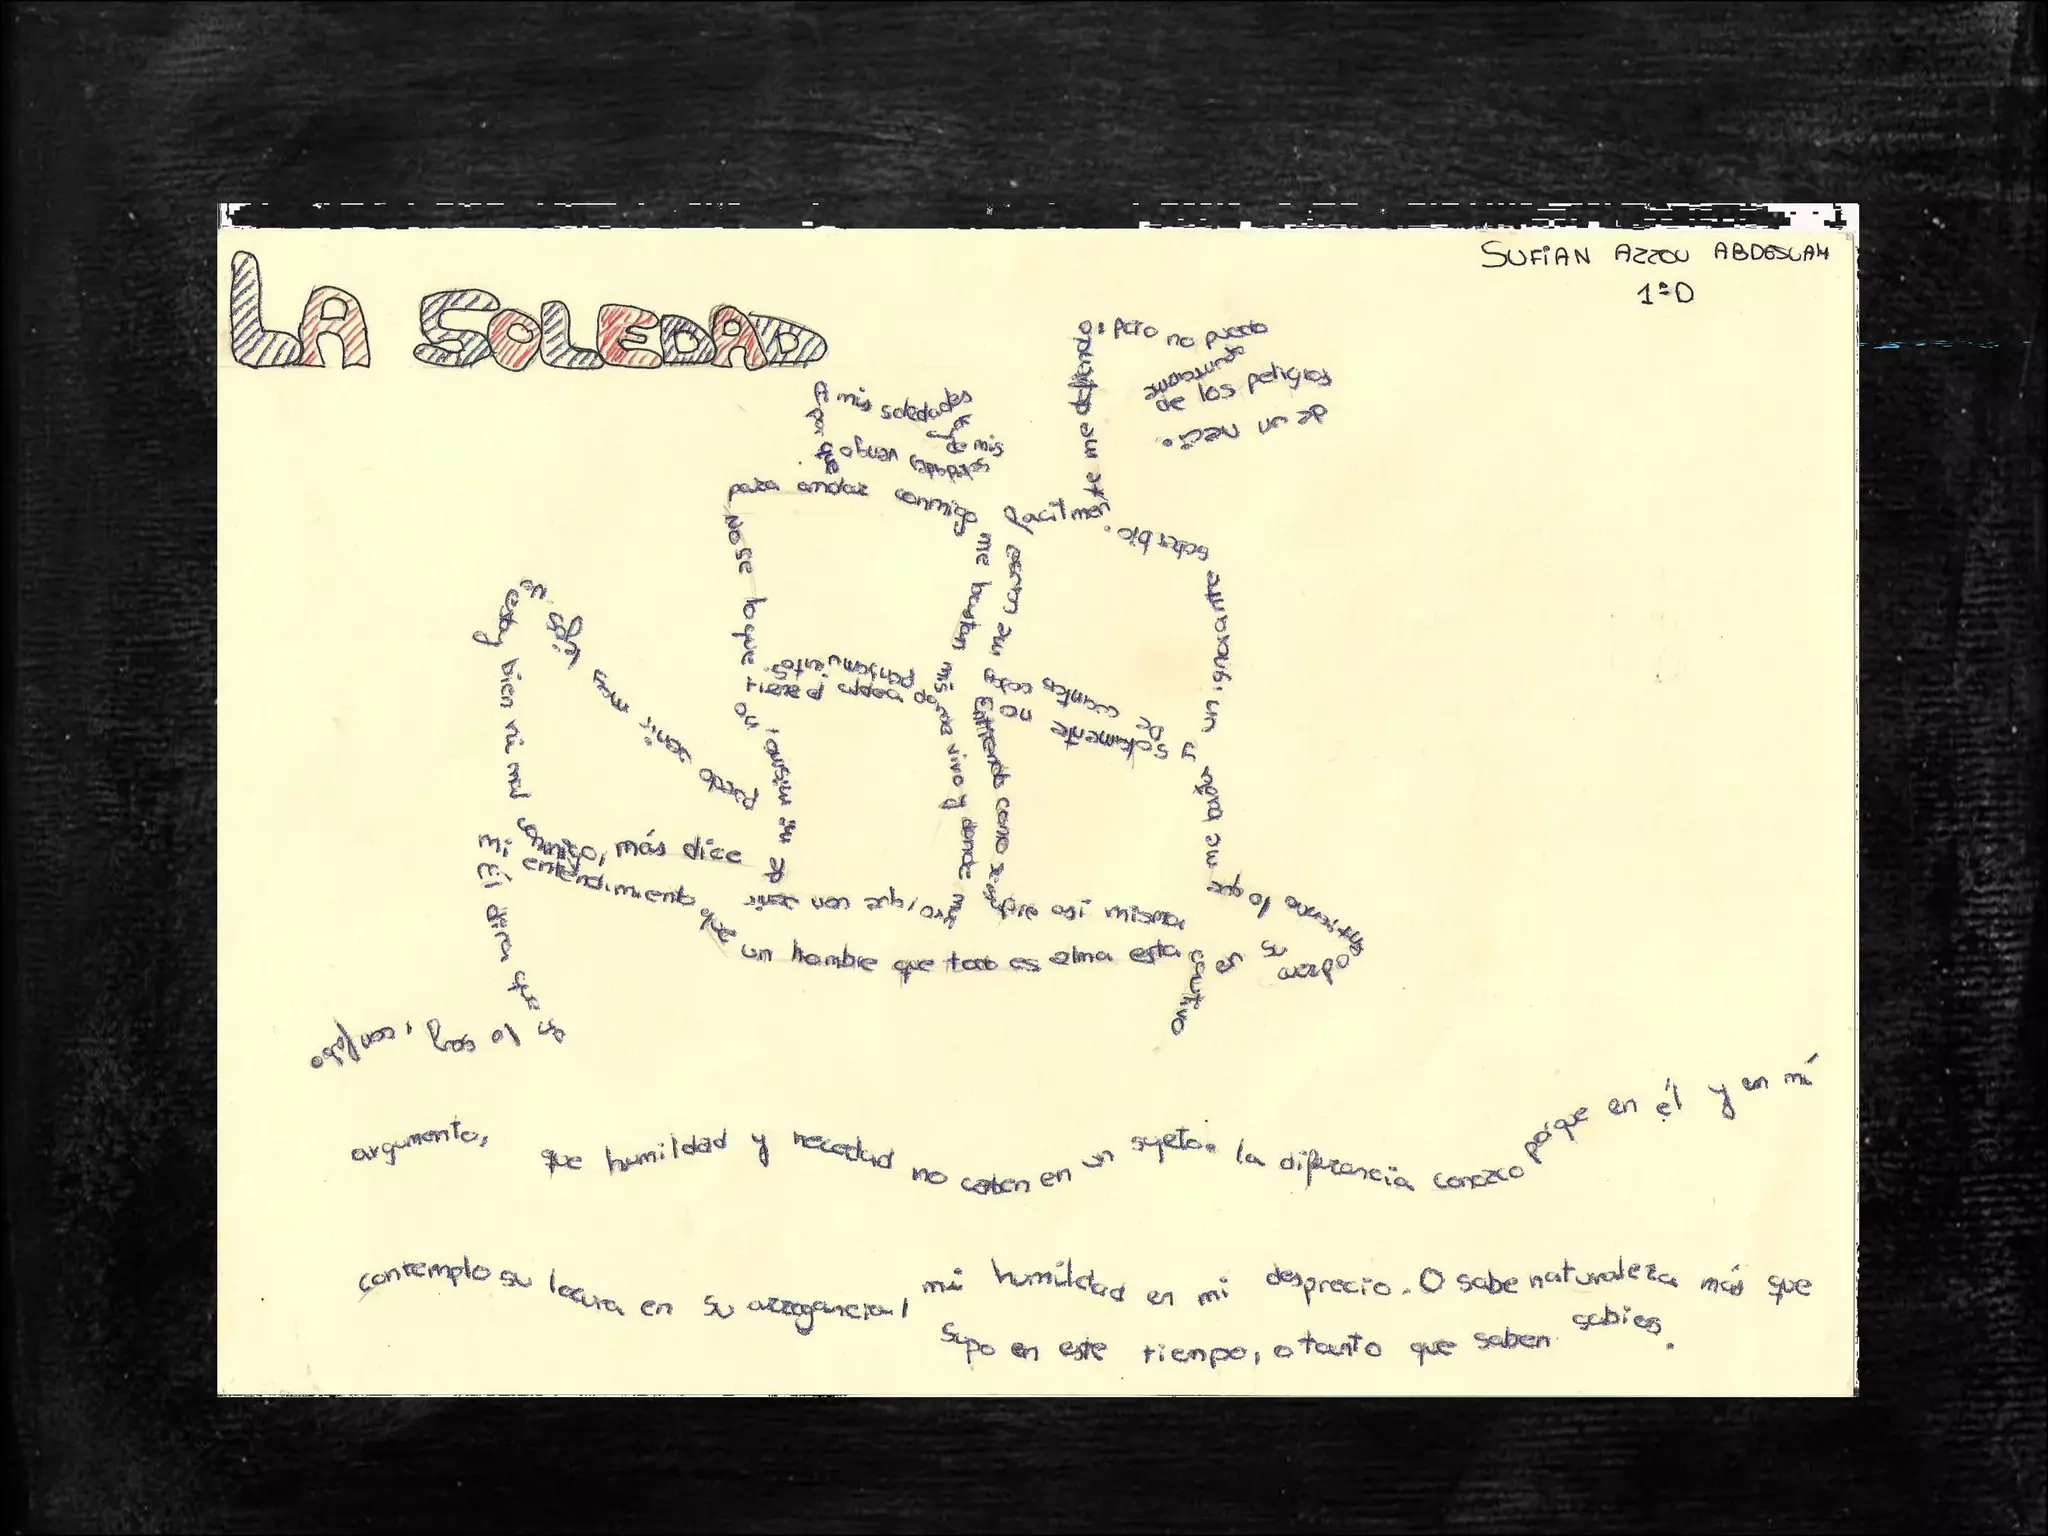 LA SOLEDAD
SUFIAN AZZOU ABDESLAM
1ºD
A mis soledades
voy de mis
soledades vengo
por que
para andar conmigo
me bastan mis
pensamientos.
No se lo que
tiene la aldea
donde vivo y donde mue
ro, que con venir
de mi mismo, no
puedo venir más lejos. Ni
estoy bien ni mal
conmigo, más dice
mi entendimiento
que un hombre que todo es alma esta
cautivo
en su cuerpo.
Entiendo lo que me basta
y solamente no
De cuantas cosas me cansan
facilmente me defiendo; pero no puedo
guardarme
de los peligros
de un necio.
El dira que
yo lo soy, con falso
argumento,
que humildad y necedad no caben en un sujeto. la diferencia conozco porque en él y en mi
contemplo su locura en su arrogancia, mi humildad en mi desprecio. O sabe naturaleza más que
supo en este tiempo, o tanto que saben sabios.